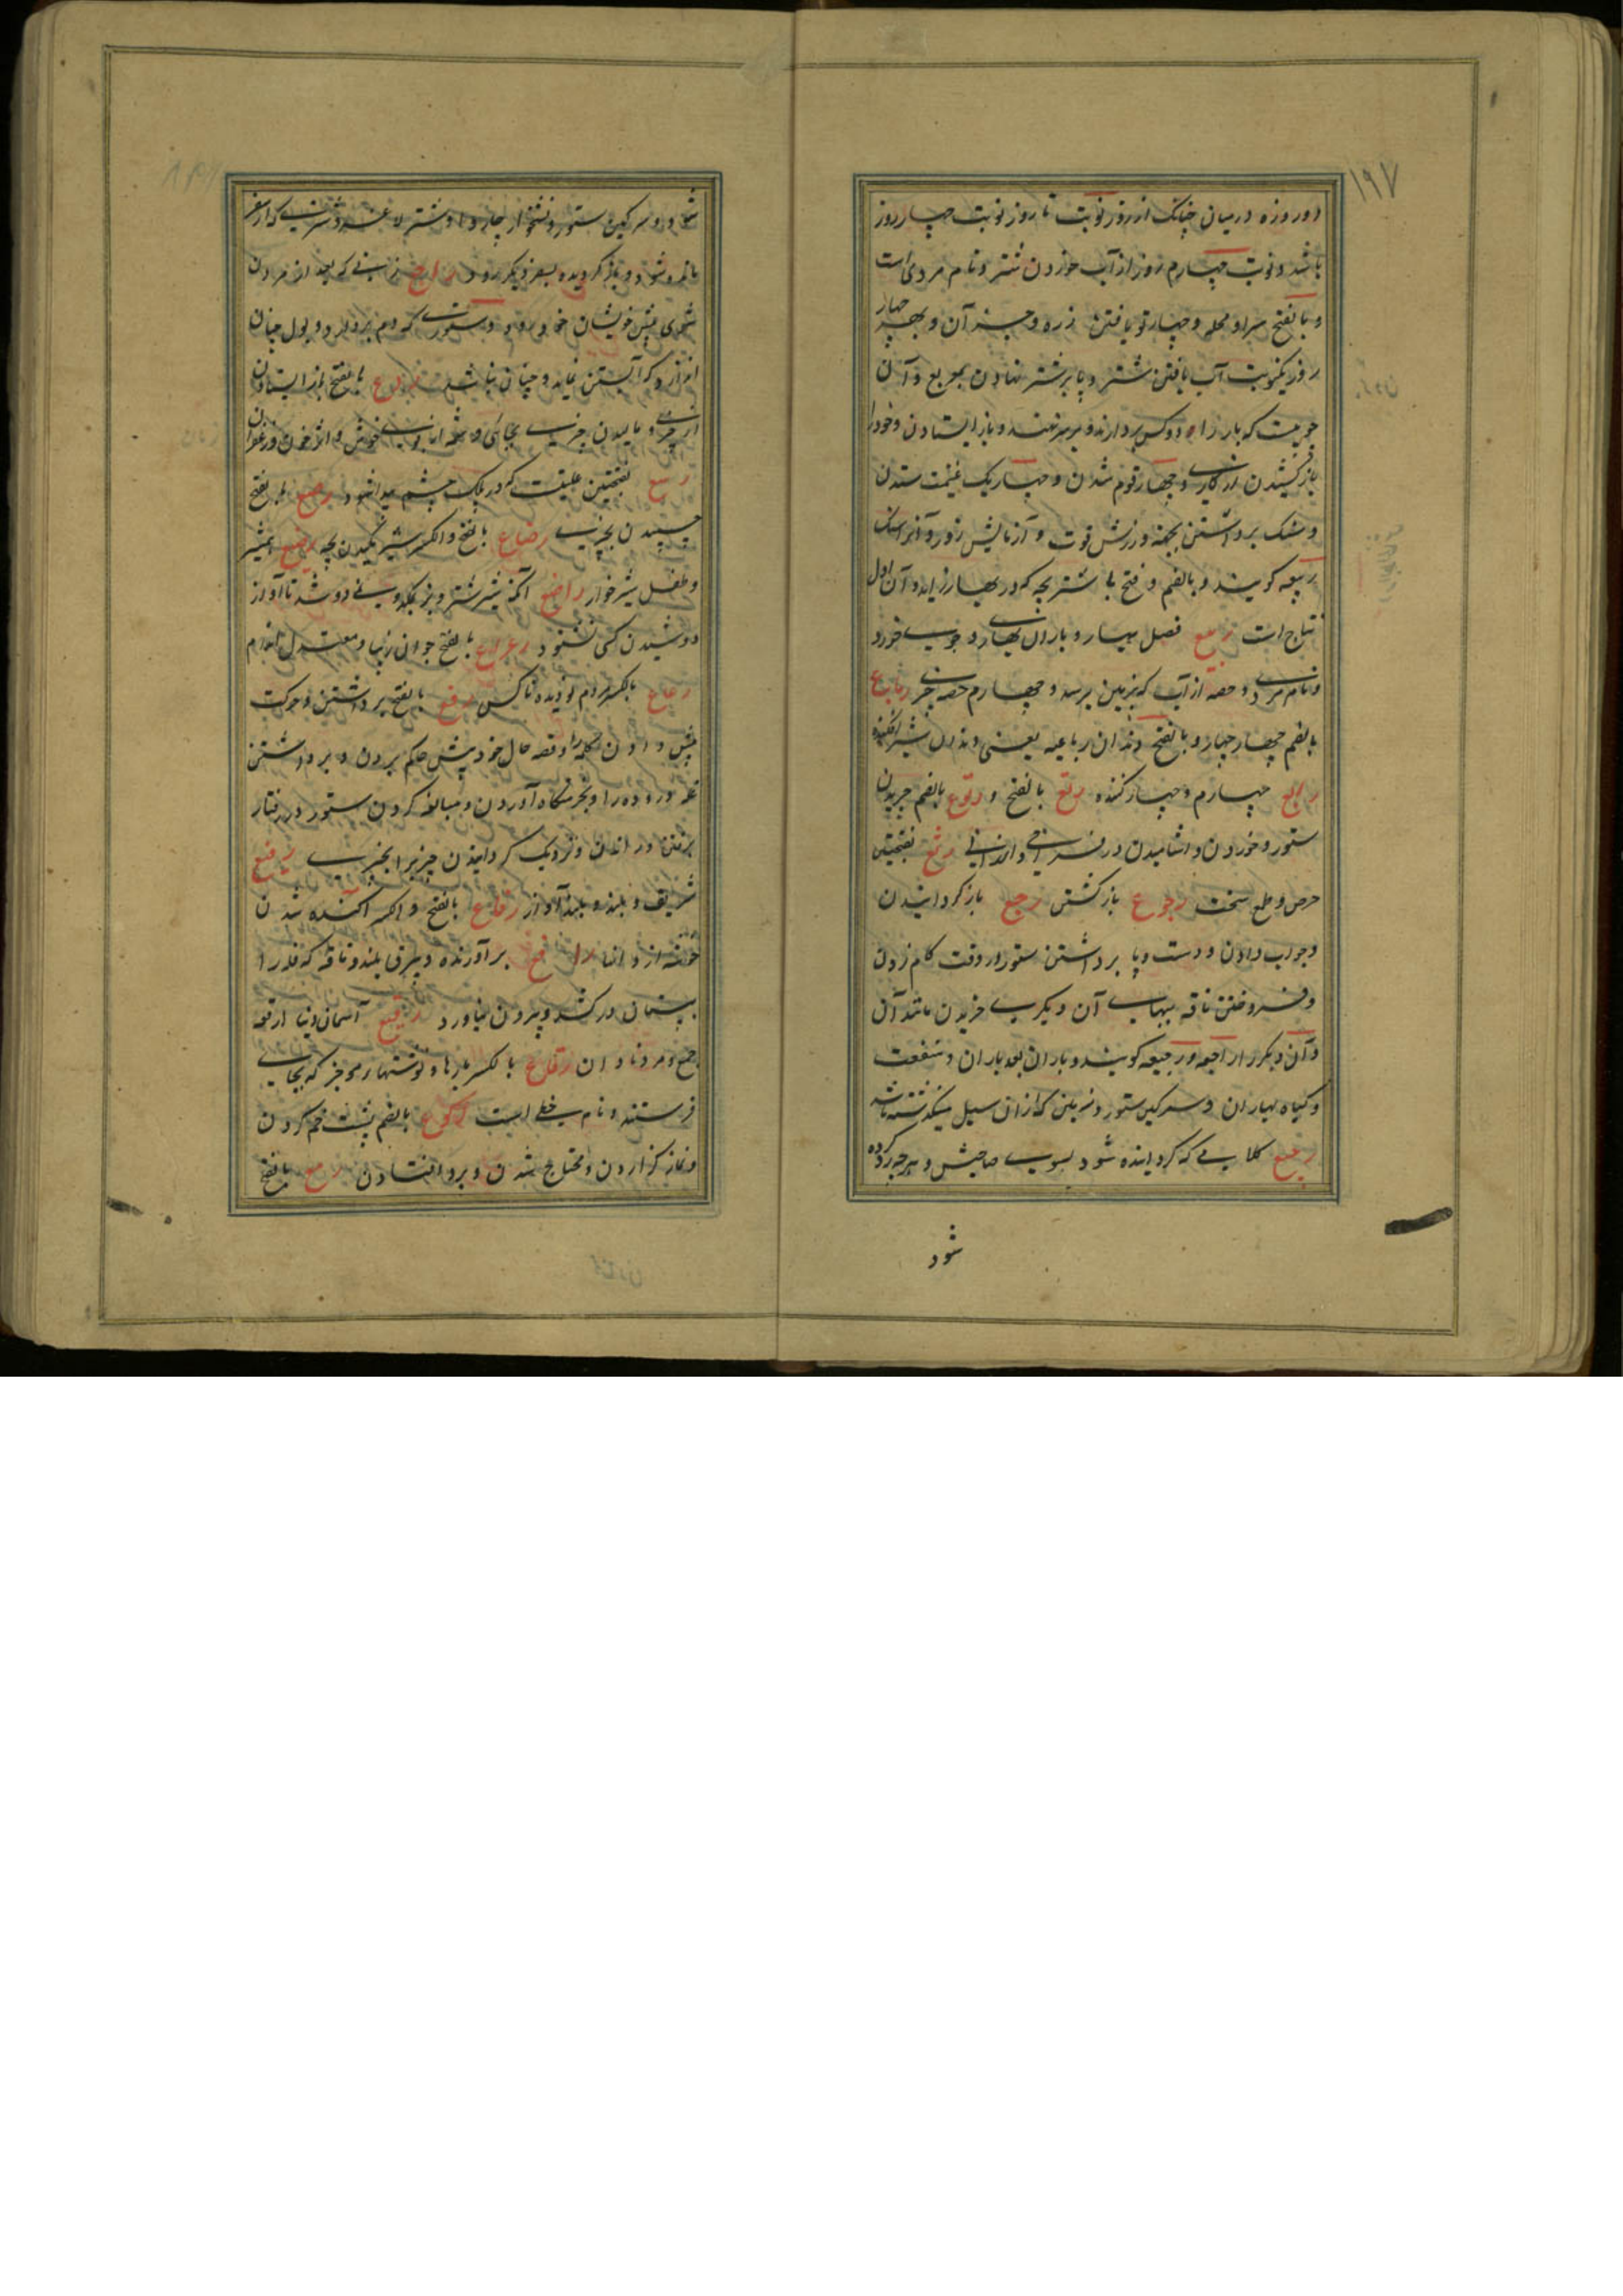 ۱۹۷
دو روزه درمیان چنانک از روز نوبت تا روز نوبت چهار روز
باشد و نوبت چهارم روز از آب خوردن شتر و نام مردی است
و بالفتح سرا و محله و چهار تو بافتن زره و جز آن و بهر چهار
روز یکنوبت آب یافتن شتر و پا بر شتر نهادن بمربع و آن
چوبیست که بار را دو کس بردارند و بر ستور نهند و باز ایستادن و خود را
باز کشیدن از کاری و چهارم قوم شدن و چهار یک غنیمت ستدن
و سنک برداشتن بجهة ورزش قوت و آزمایش زور و آنرا سنک
ربیعه کویند و بالضم و فتح با شتر بچه که در بهار زاید و آن اول
نتاج است ربیع فصل بهار و باران بهاری و جوی خورد
و نام مردی و حصه از آب که بزمین برسد و چهارم حصه چیزی رباع
بالضم چهار چهار و بالفتح دندان رباعیه یعنی دندان شیر افکنده
رابع چهارم و چهار کننده رتع بالفتح و رتوع بالضم چریدن
ستور و خوردن و اشامیدن در فراخی و ارزانی رثع بفتحتین
حرص و طمع سخت رجوع باز کشتن رجع باز کردانیدن
و جواب دادن و دست و پا برداشتن ستور در وقت کام زدن
و فروختن ناقه ببهای آن دیگری خریدن مانند آن
و آن دیگر را راجعه و رجیعه کویند و باران بعد باران و منفعت
و کیاه بهاران و سرکین ستور و زمین که ازان سیل بگذشته باشد
رجیع کلامی که کردانیده شود بسوی صاحبش و هر چه رد کرده
شود
شود و سرکین ستور و نشخوار چاروا و شتر لاغر و شتری که از سفر
مانده شود و باز کردیده بسفر دیکر رود راجع زنی که بعد از مردن
شوی پیش خویشان خود رود و ستوری که دم بردارد و بول چنان
اندازد که آبستن نماید و چنان نباشد ردع بالفتح باز ایستادن
از چیزی و مالیدن چیزی بجائی و شمه از بوی خوش و اثر خون و زعفران
رسع بفتحتین علتیست که در پلک چشم پیدا شود رصع بالفتح
چسپیدن بچیزی رضاع بالفتح و الکسر شیر مکیدن بچه رضیع همشیر
و طفل شیرخوار راضع آنکه شیر شتر و بز بمکد و نمی دوشد تا آواز
دوشیدن کسی نشنود رعراع بالفتح جوان زیبا و معتدل اندام
رعاع بالکسر مردم نو دیده ناکس رفع بالفتح برداشتن و حرکت
پیش دادن کلمه را و قصه حال خود پیش حاکم بردن و برداشتن
غله دروده را و بخرمنکاه آوردن و مبالغه کردن ستور در رفتار
برفتن در اندن و نزدیک کردانیدن چیزیرا بچیزی رفیع
شریف و بلند و بلند آواز رفاع بالفتح و الکسر آکنده شدن
خوشه از دانها رافع برآورنده و برق بلند و ناقه که فله را
بپستان درکشد و بیرون نیاورد رقیع آسمان دنیا ارقعه
جمع و مرد نادان رقاع بالکسر پارها و نوشتهای موجز که بجای
فرستند و نام خطی است رکوع بالضم پشت خم کردن
و نماز کزاردن و محتاج شدن و برو افتادن رمع بالفتح